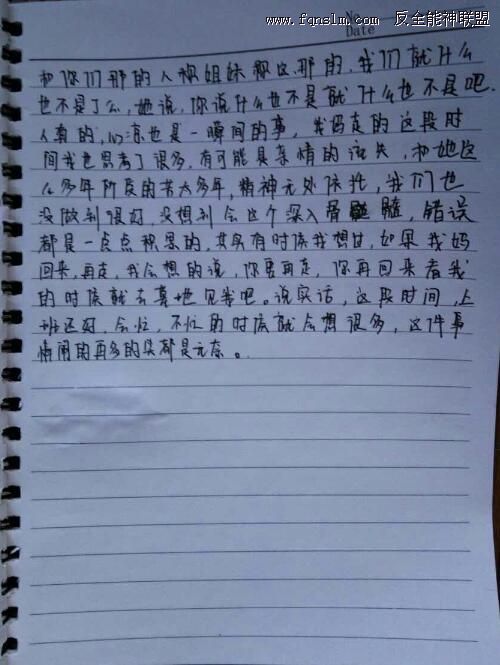 www.fqnslm.com 反全能神联盟
No.
Date
和你们那的人称姐妹称这那的,我们就什么
也不是了么,她说,你说什么也不是就什么也不是吧.
人真的,心凉也是一瞬间的事,我妈走的这段时
间我也思考了很多,有可能是亲情的流失,和她这
么多年阶段的苦大多年,精神无处依托,我们也
没做到很好,没想到会这个深入骨髓,错误
都是一点点积累的,其实有时候我想过,如果我妈
回来,再走,我会想的说,你要再走,你再回来看我
的时候就去墓地见我吧。说实话,这段时间,上
班还好,会忙,不忙的时候就会想很多,这件事
情闹的再多的哭都是无奈。